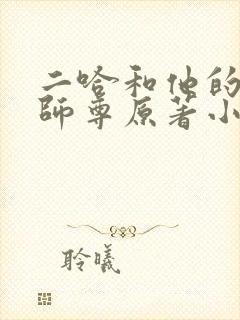 二哈和他的
師尊原著小
聆曦